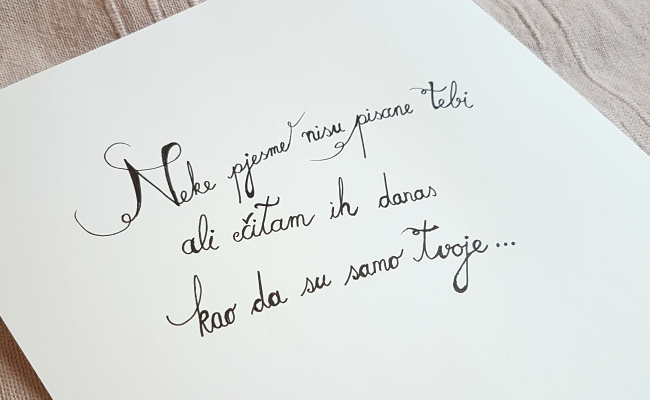 Neke pjesme nisu pisane tebi
ali čitam ih danas
kao da su samo tvoje...